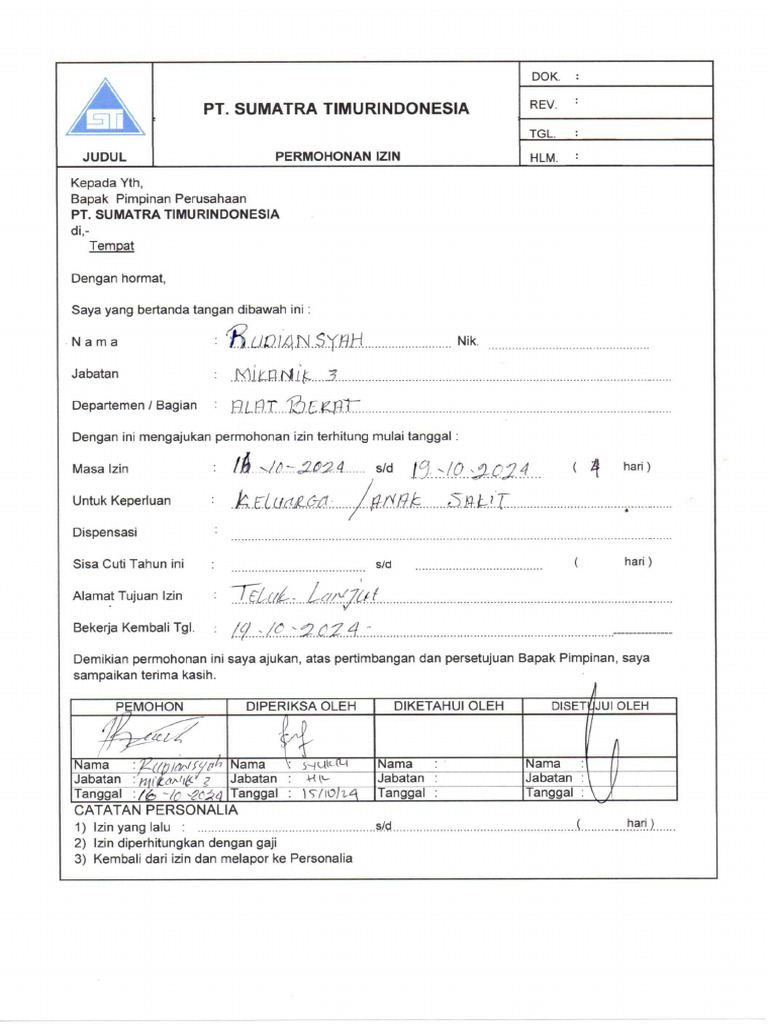 DOK. :
STI
PT. SUMATRA TIMURINDONESIA
REV. :
TGL. :
JUDUL
PERMOHONAN IZIN
HLM. :
Kepada Yth,
Bapak Pimpinan Perusahaan
PT. SUMATRA TIMURINDONESIA
di,-
Tempat
Dengan hormat,
Saya yang bertanda tangan dibawah ini :
N a m a : RUDIANSYAH Nik.
Jabatan : MIKANIK 3
Departemen / Bagian : ALAT BERAT
Dengan ini mengajukan permohonan izin terhitung mulai tanggal :
Masa Izin : 16-10-2024 s/d 19-10-2024 ( 4 hari )
Untuk Keperluan : KELUARGA / ANAK SAKIT
Dispensasi :
Sisa Cuti Tahun ini : s/d ( hari )
Alamat Tujuan Izin : TELUK Lanjut
Bekerja Kembali Tgl. : 19-10-2024-
Demikian permohonan ini saya ajukan, atas pertimbangan dan persetujuan Bapak Pimpinan, saya
sampaikan terima kasih.
PEMOHON DIPERIKSA OLEH DIKETAHUI OLEH DISETUJUI OLEH
Nama : Rudiansyah Nama : SYUKRI Nama : Nama :
Jabatan : mikanik 3 Jabatan : Jabatan : Jabatan :
Tanggal : 16-10-2024 Tanggal : 15/10/24 Tanggal : Tanggal :
CATATAN PERSONALIA
1) Izin yang lalu : s/d ( hari )
2) Izin diperhitungkan dengan gaji
3) Kembali dari izin dan melapor ke Personalia